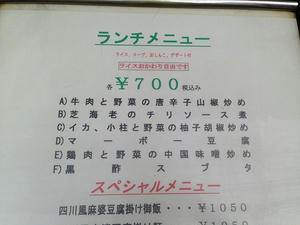 ランチメニュー
ライス、スープ、おしんこ、デザート付
ライスおかわり自由です
各 ￥700 税込み
A)牛肉と野菜の唐辛子山椒炒め
B)芝海老のチリソース煮
C)イカ、小柱と野菜の柚子胡椒炒め
D)マーボー豆腐
E)鶏肉と野菜の中国味噌炒め
F)黒酢スブタ
スペシャルメニュー
四川風麻婆豆腐掛け御飯・・・￥1050